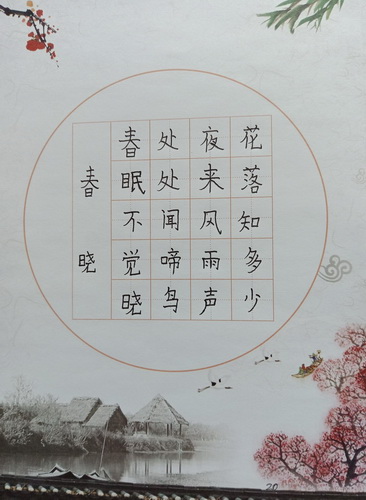 春晓
春眠不觉晓
处处闻啼鸟
夜来风雨声
花落知多少
20